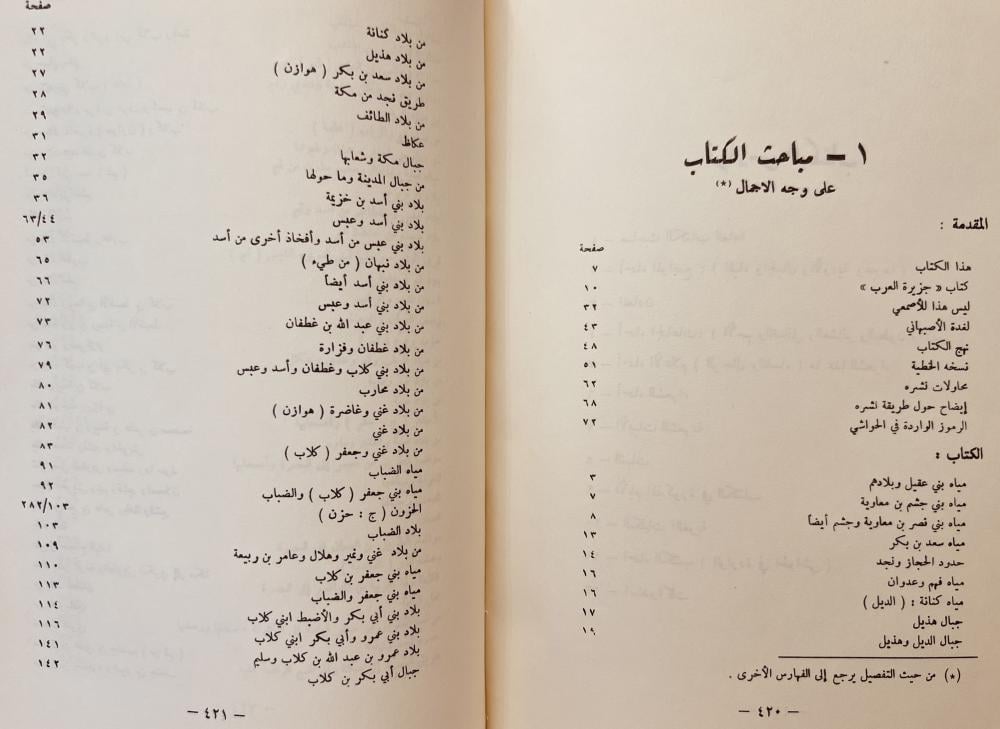 ١ – مباحث الكتاب
على وجه الاجمال (*)
المقدمة :
صفحة
هذا الكتاب ٧
كتاب « جزيرة العرب » ١٠
ليس هذا للأصمعي ٣٢
لغدة الأصبهاني ٤٣
نهج الكتاب ٤٨
نسخه الخطية ٥١
محاولات نشره ٦٢
إيضاح حول طريقة نشره ٦٨
الرموز الواردة في الحواشي ٧٢
الكتاب :
مياه بني عقيل وبلادهم ٣
مياه بني جشم بن معاوية ٧
مياه بني نصر بن معاوية وجشم أيضاً ٨
مياه سعد بن بكر ١٣
حدود الحجاز ونجد ١٤
مياه فهم وعدوان ١٦
مياه كنانة : ( الديل ) ١٦
جبال هذيل ١٧
جبال الديل وهذيل ١٩
(*) من حيث التفصيل يرجع إلى الفهارس الأخرى .
– ٤٢٠ –
صفحة
من بلاد كنانة ٢٢
من بلاد هذيل ٢٢
من بلاد سعد بن بكر ( هوازن ) ٢٧
طريق نجد من مكة ٢٨
من بلاد الطائف ٢٩
عكاظ ٣١
جبال مكة وشعابها ٣٢
من جبال المدينة وما حولها ٣٥
بلاد بني أسد بن خزيمة ٣٦
بلاد بني أسد وعبس ٦٣/٤٤
بلاد بني عبس من أسد وأفخاذ أخرى من أسد ٥٣
من بلاد نبهان ( من طيء ) ٦٥
من بلاد بني أسد أيضاً ٦٦
من بلاد بني أسد وعبس ٧٢
من بلاد بني عبد الله بن غطفان ٧٣
من بلاد غطفان وفزارة ٧٦
من بلاد بني كلاب وغطفان وأسد وعبس ٧٩
من بلاد محارب ٨٠
من بلاد غني وغاضرة ( هوازن ) ٨١
من بلاد غني ٨٢
من بلاد غني وجعفر ( كلاب ) ٨٣
مياه الضباب ٩١
مياه بني جعفر ( كلاب ) والضباب ٩٢
الحزون ( ج : حزن ) ٢٨٢/١٠٣
بلاد الضباب ١٠٣
من بلاد غني ونمير وهلال وعامر بن ربيعة ١٠٩
مياه بني جعفر بن كلاب ١١٠
مياه بني جعفر والضباب ١١٣
بلاد بني أبي بكر والأضبط ابني كلاب ١١٤
بلاد بني عمرو وأبي بكر ابني كلاب ١١٦
بلاد عمرو بن عبد الله بن كلاب وسليم ١٤١
جبال أبي بكر بن كلاب ١٤٢
– ٤٢١ –